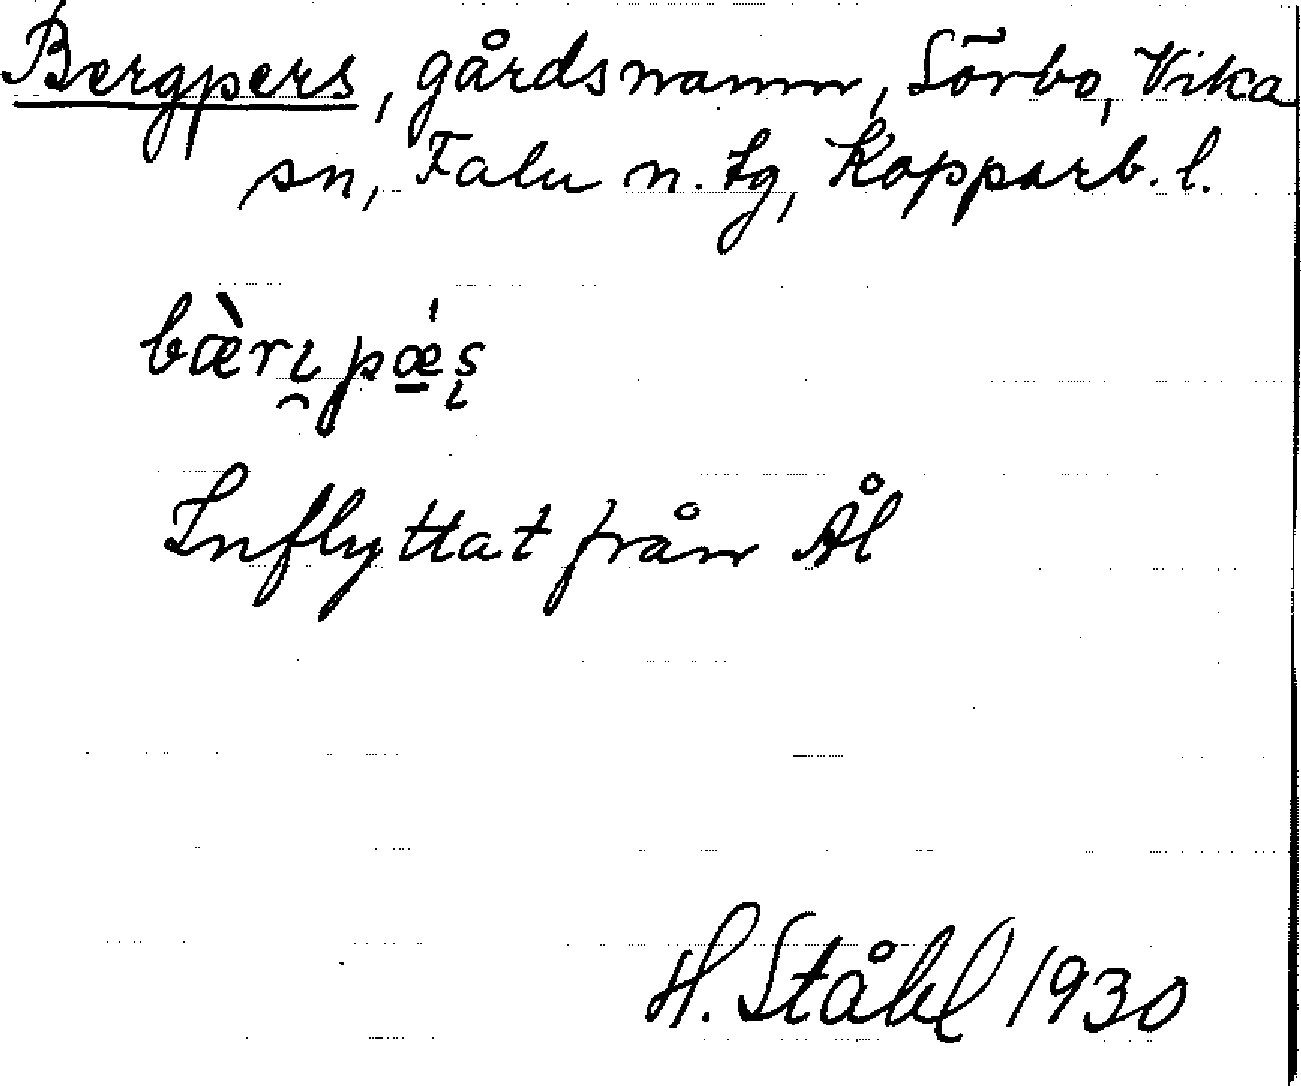 Bergpers, gårdsnamn, Sörbo, Vika
sn, Falu n. tg, Kopparb. l.
bæ̀rı̯pǽ̱ş
Inflyttat från Ål
H. Ståhl 1930